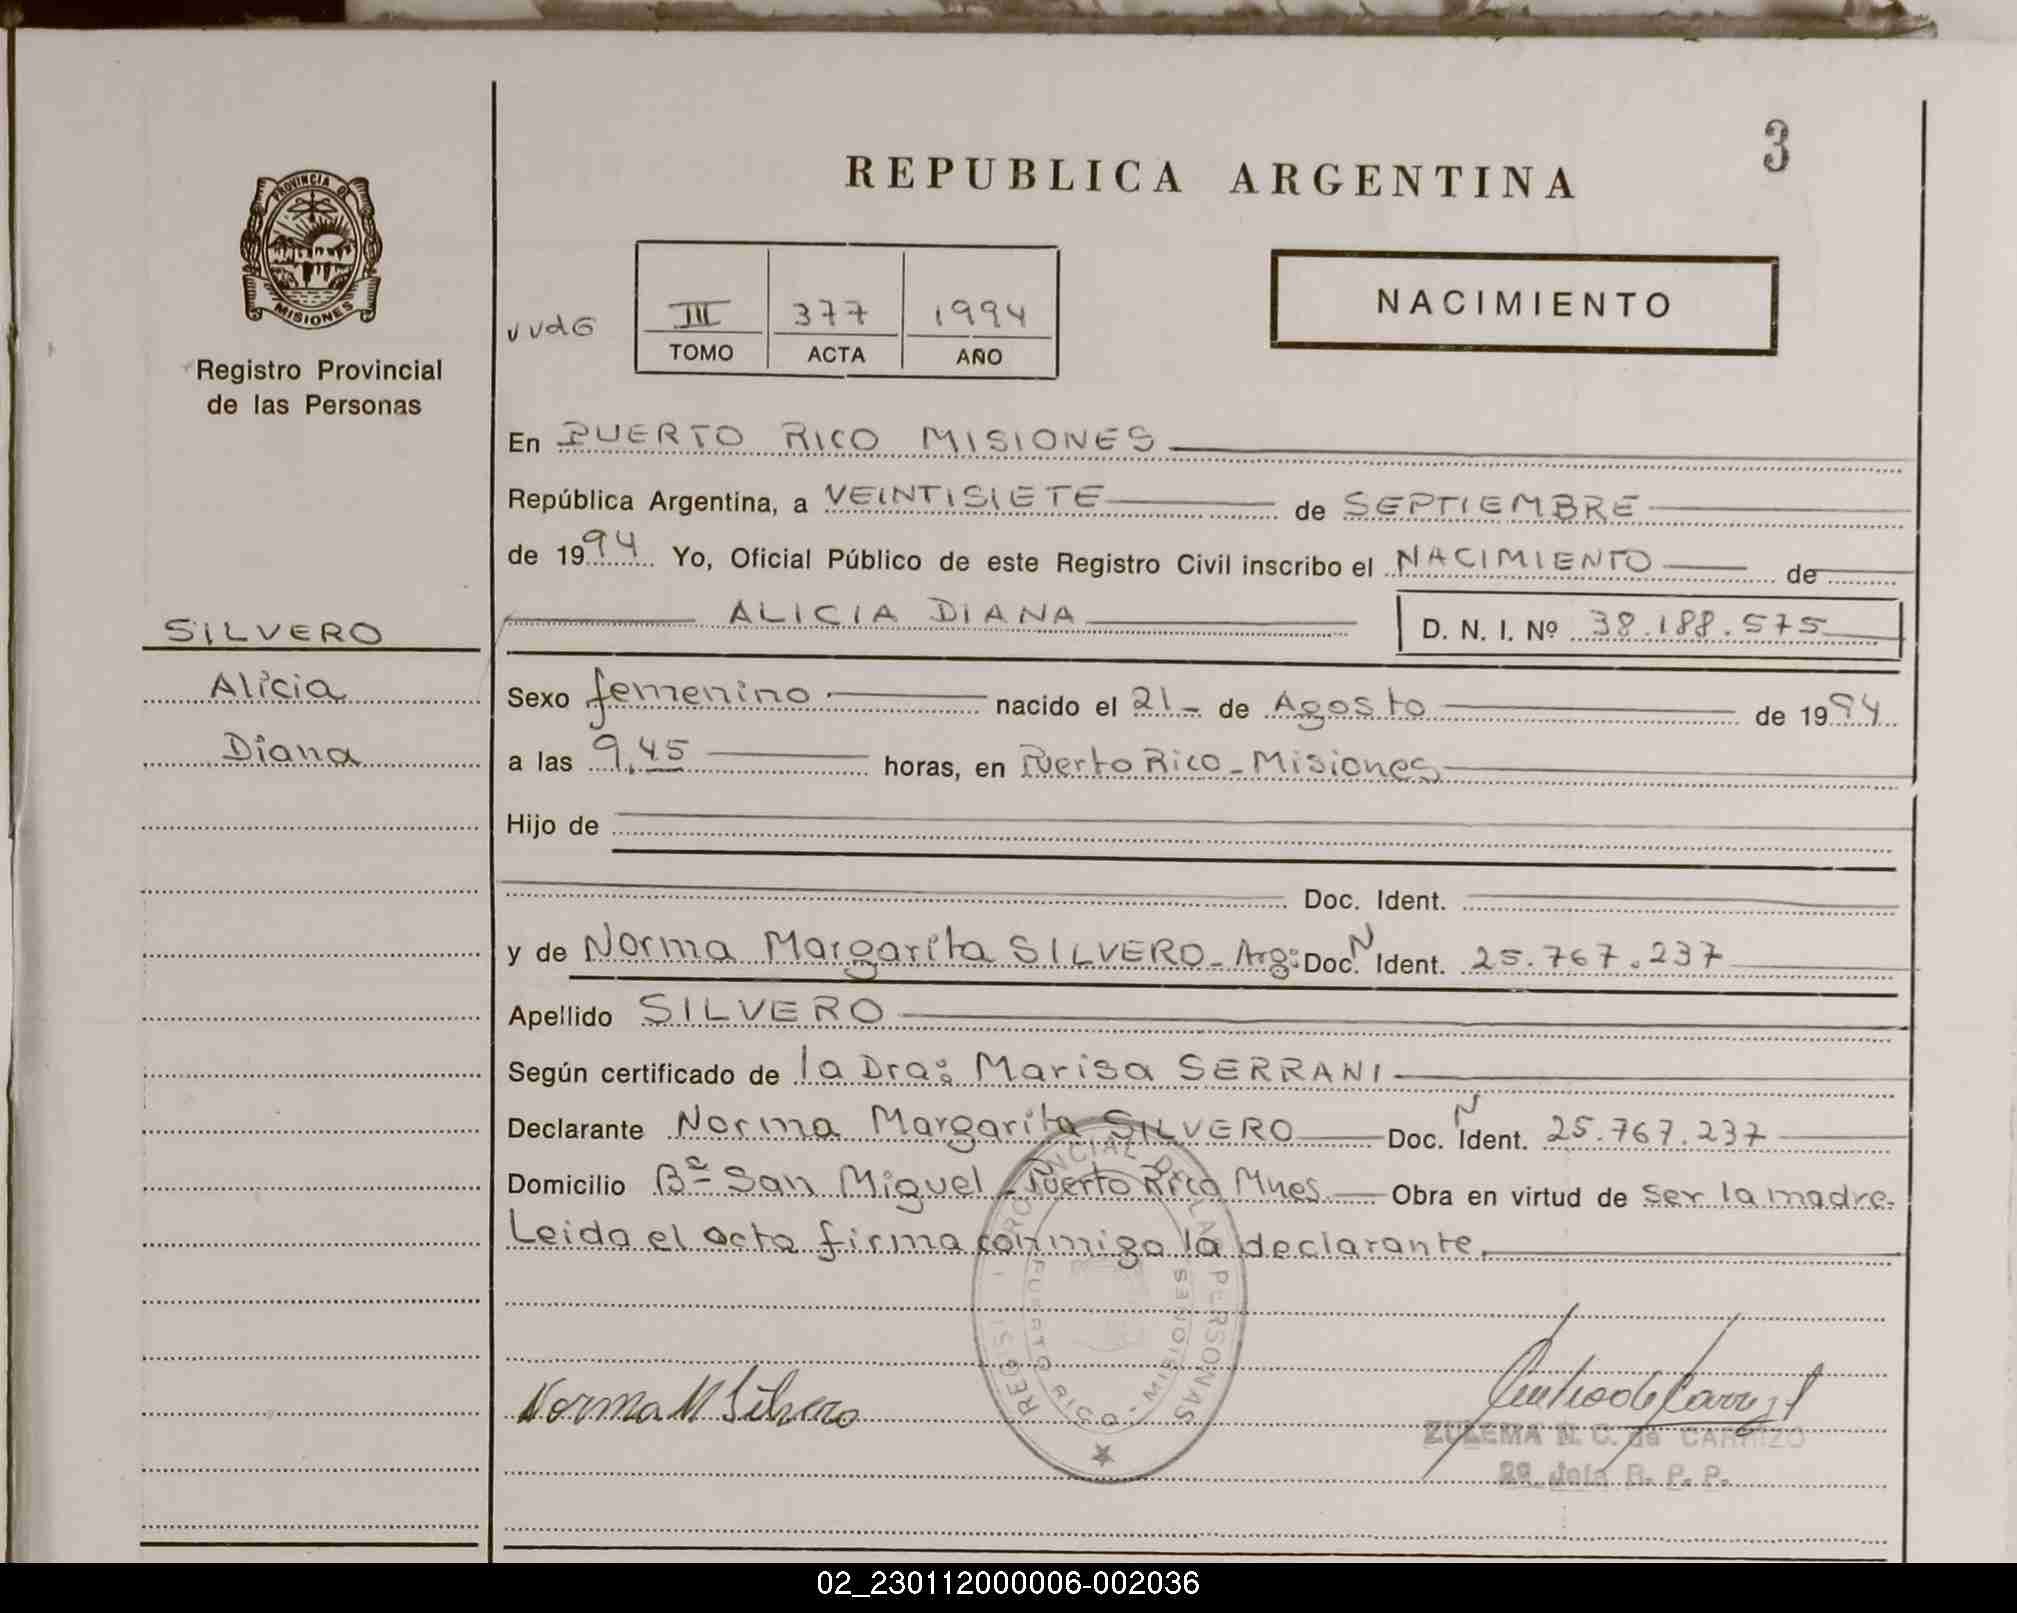 3
REPUBLICA ARGENTINA
PROVINCIA D
MISIONES
Registro Provincial
de las Personas
III 377 1994
TOMO ACTA AÑO
NACIMIENTO
En PUERTO RICO MISIONES
República Argentina, a VEINTISIETE de SEPTIEMBRE
de 1994 Yo, Oficial Público de este Registro Civil inscribo el NACIMIENTO de
ALICIA DIANA D. N. I. Nº 38.188.575
SILVERO
Alicia
Diana
Sexo femenino nacido el 21 de Agosto de 1994
a las 9,45 horas, en Puerto Rico - Misiones
Hijo de
Doc. Ident.
y de Norma Margarita SILVERO - Arg: Doc. N Ident. 25.767.237
Apellido SILVERO
Según certificado de la Dra: Marisa SERRANI
Declarante Norma Margarita SILVERO Doc. N Ident. 25.767.237
Domicilio Bº San Miguel - Puerto Rico Mnes Obra en virtud de ser la madre.
Leida el acta firma conmigo la declarante.
REGIST PROVINCIAL DE LAS PERSONAS
PUERTO RICO - MISIONES
Norma M Silvero
ZULEMA N. C. de CARRIZO
2º Jefa R. P. P.
02_230112000006-002036